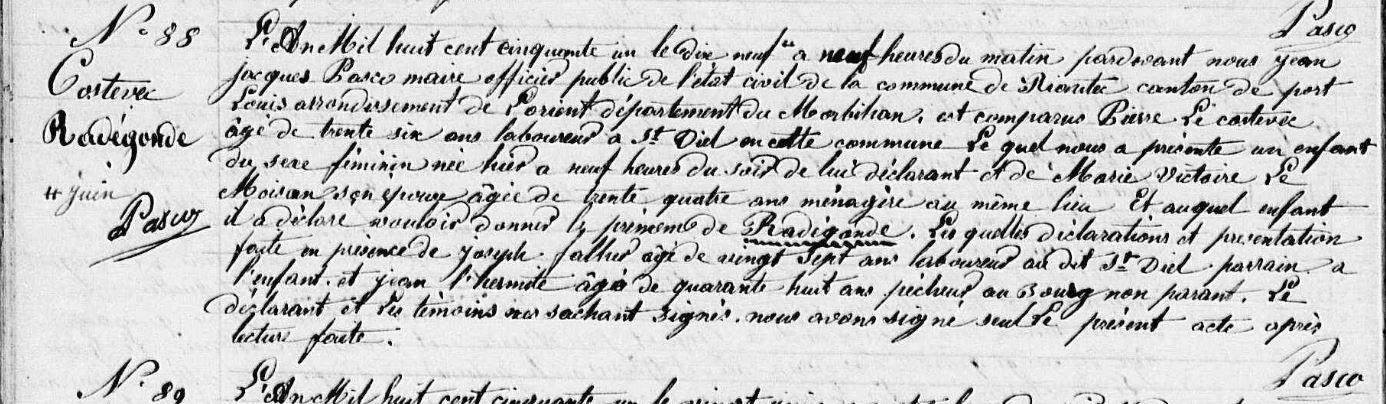 Pasco
N.o 88
Costevec
Radégonde
4 juin
Pasco
L'An Mil huit cent cinquante un le dix neuf a neuf heures du matin pardevant nous jean
jacques Pasco maire officier public de l'état civil de la commune de Riantec canton de port
Louis arrondissement de Lorient département du Morbihan, est comparus Pierre Le costevec
âgé de trente six ans laboureur a St Diel en cette commune Le quel nous a présente un enfant
du sexe féminin née hier a neuf heures du soir de lui déclarant et de Marie Victoire Le
Moisan son épouse âgée de trente quatre ans ménagère au même lieu Et auquel enfant
il a déclare vouloir donner le prénoms de Radégonde. Les quelles déclarations et presentation
faite en presence de joseph fallher âgé de vingt sept ans laboureur au dit St Diel parrain a
l'enfant. et jean l'hermite âgé de quarante huit ans pecheur au Bourg non parant. Le
déclarant et Les témoins ne sachant signés. nous avons signe seul Le présent acte après
lecture faite.
Pasco
N.o 89
L'An Mil huit cent cinquante un le vingt